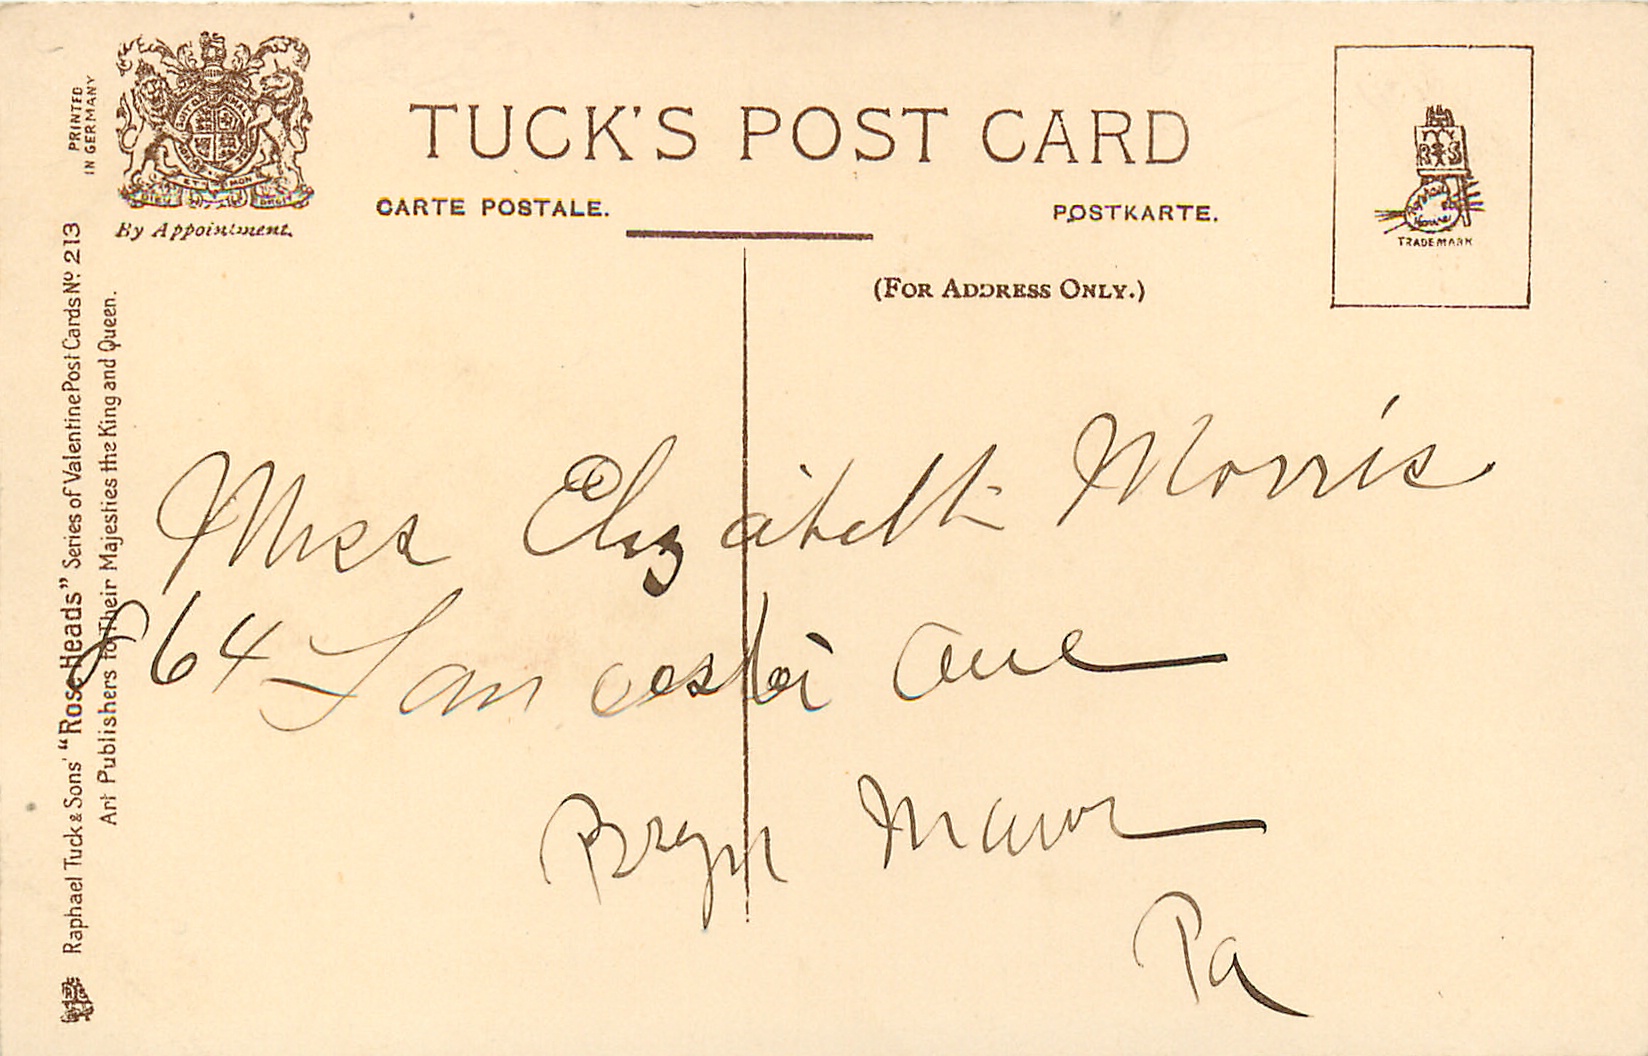 PRINTED
IN GERMANY
By Appointment.
TUCK'S POST CARD
CARTE POSTALE.
POSTKARTE.
(FOR ADDRESS ONLY.)
TRADE MARK
Raphael Tuck & Sons' "Rose Heads" Series of Valentine Post Cards Nº. 213
Art Publishers to Their Majesties the King and Queen.
Miss Elizabeth Morris
864 Lancaster Ave
Bryn Mawr
Pa